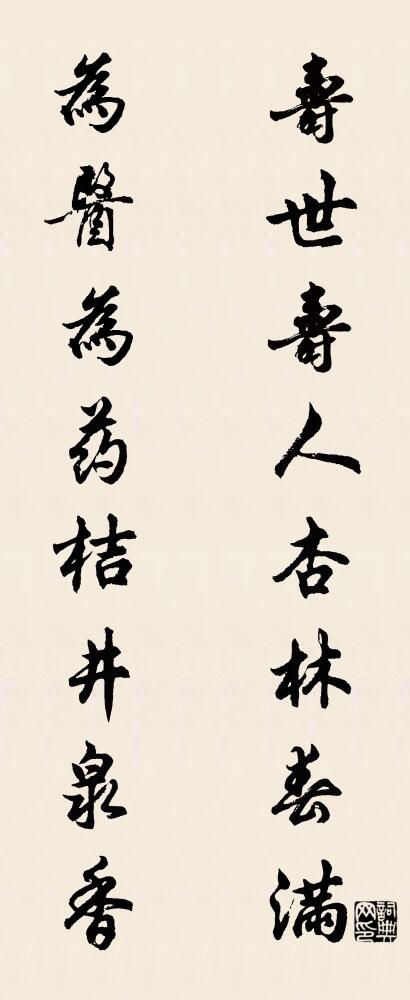 壽世壽人杏林春滿
為醫為药桔井泉香
詞典网印